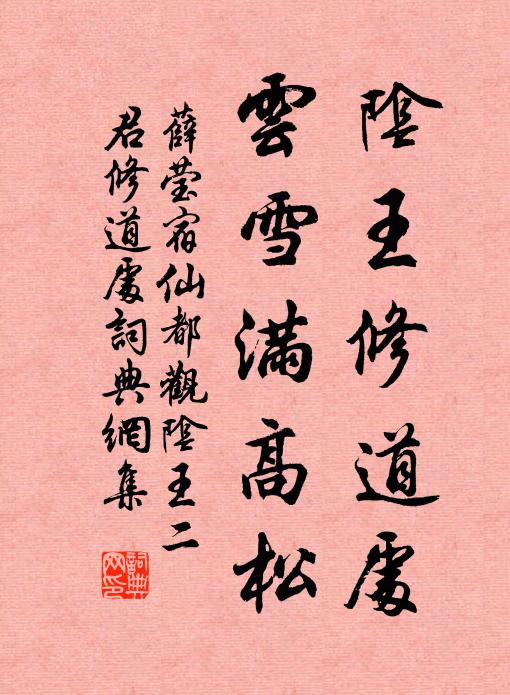 陰王修道處
雲雪滿高松
薛瑩宿仙都觀陰王二
君修道處詞典網集
詞典网印